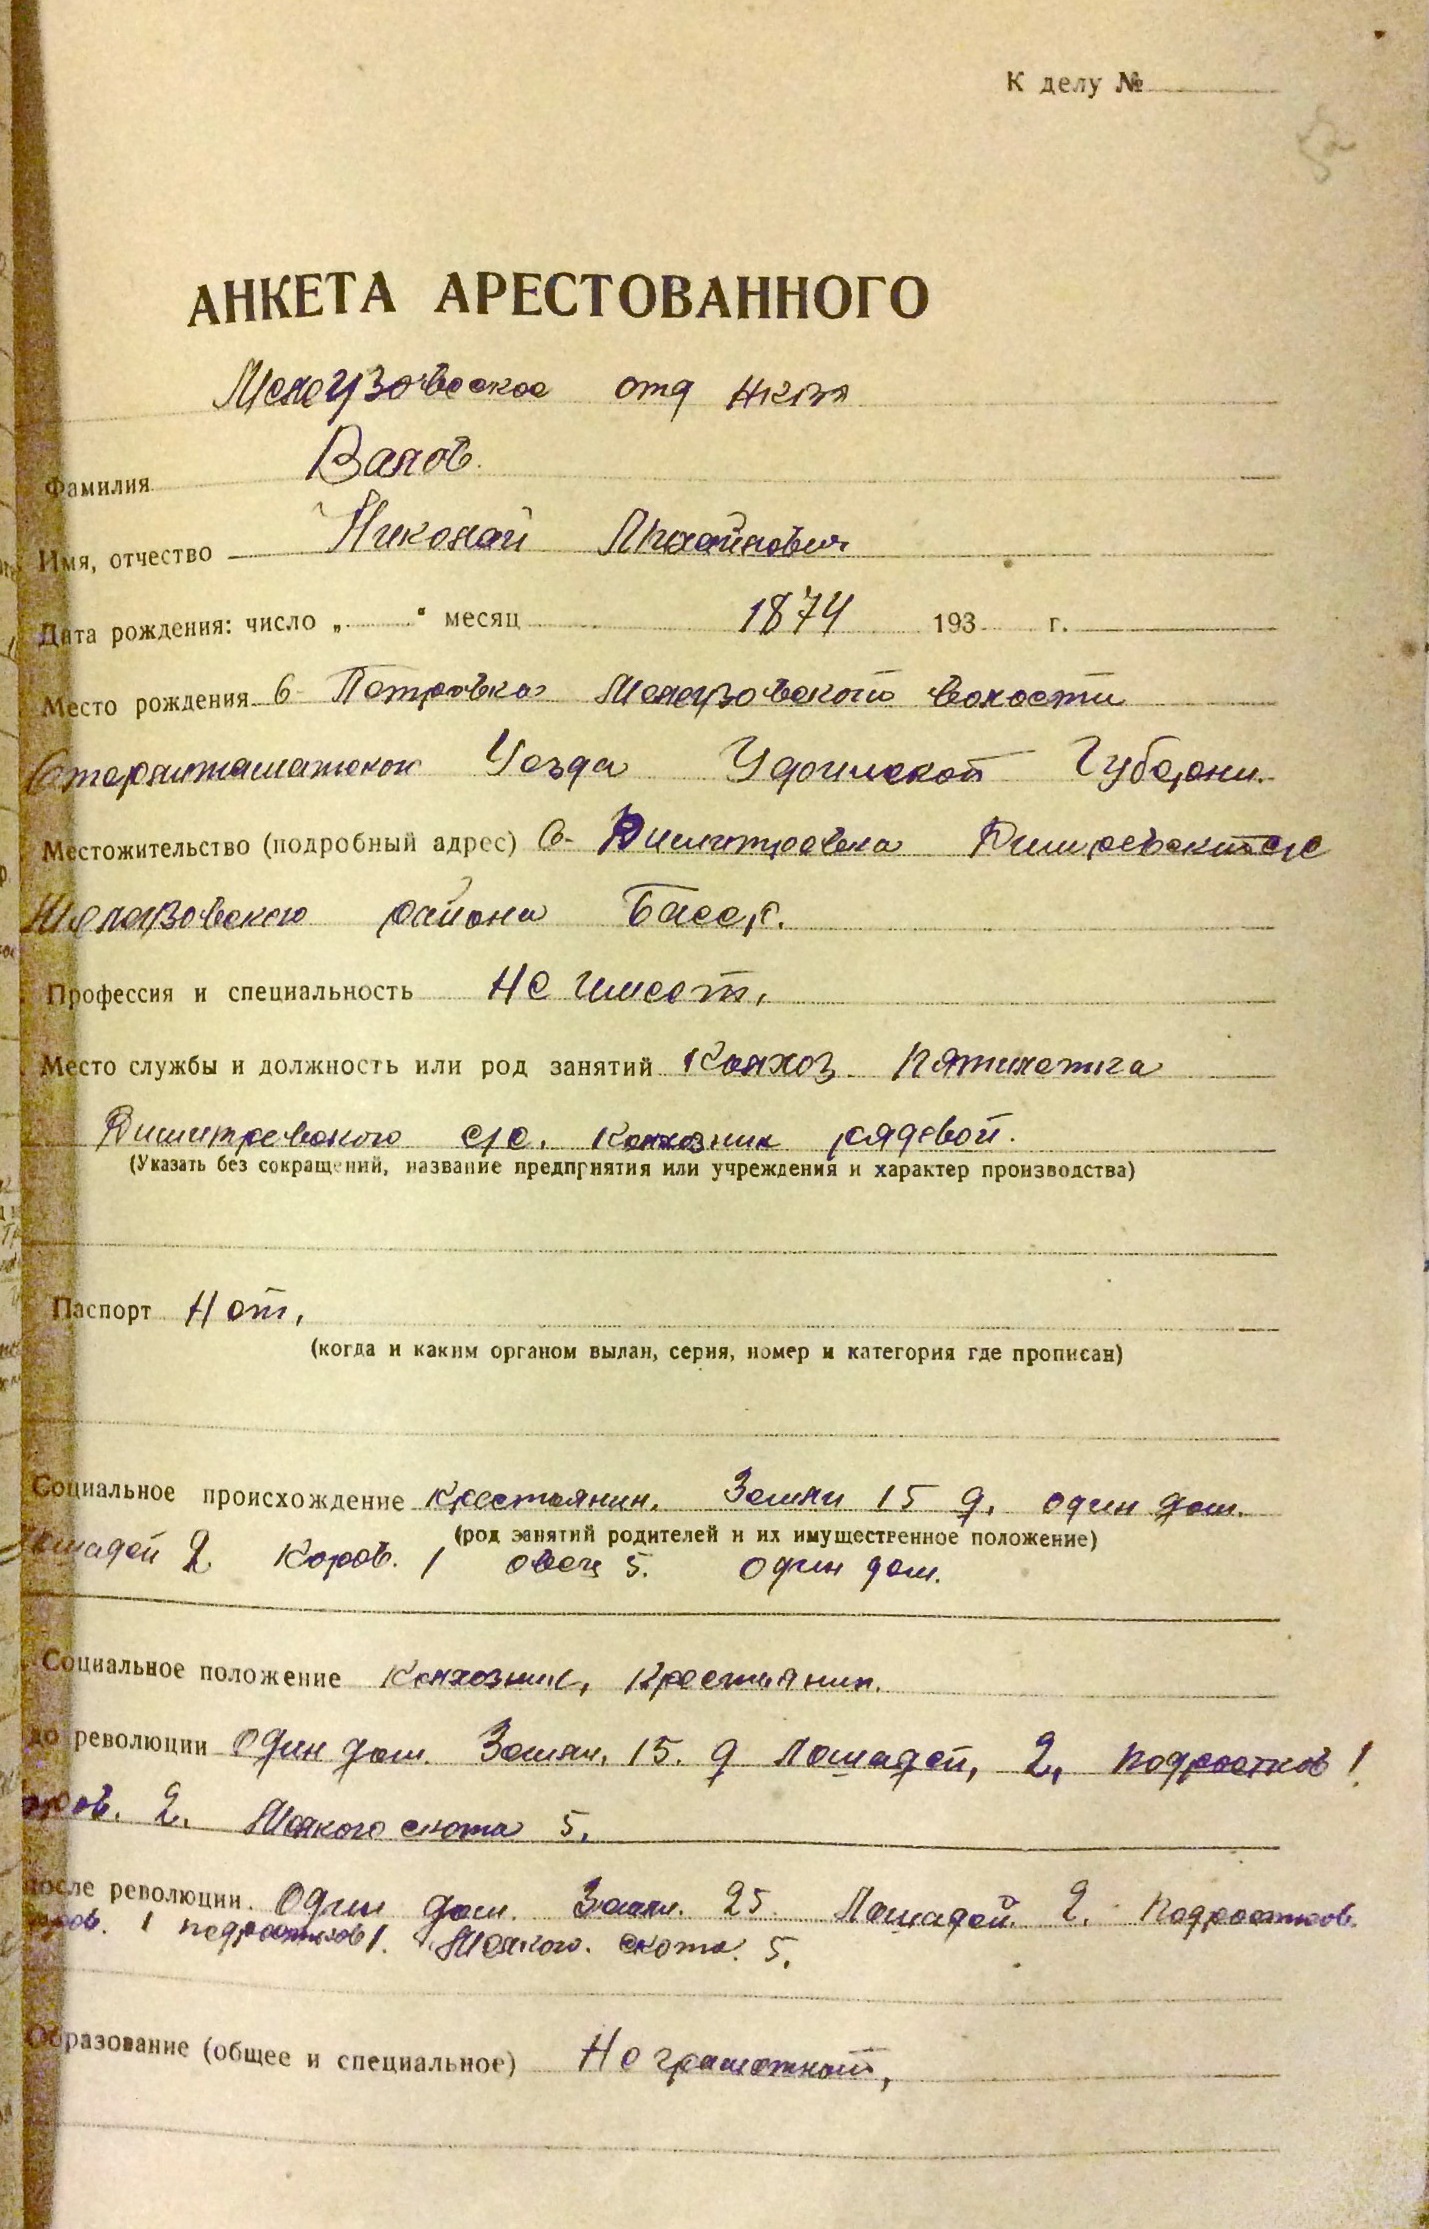 К делу №
АНКЕТА АРЕСТОВАННОГО
Мелеузовское отд НКВД
Фамилия Валов.
Имя, отчество Николай Михайлович
Дата рождения: число „ “ месяц 1874 193 г.
Место рождения с- Петровка Мелеузовской волости
Стерлитаматской Уезда Уфимской Губерни.
Местожительство (подробный адрес) с- Димитровка
Мелеузовского района Басср.
Профессия и специальность Не имеет,
Место службы и должность или род занятий Колхоз Пятилетка
Димитревского с/с. колхозник рядовой.
(Указать без сокращений, название предприятия или учреждения и характер производства)
Паспорт Нет,
(когда и каким органом выдан, серия, номер и категория где прописан)
Социальное происхождение крестьянин. Земли 15 д. один дом.
(род занятий родителей и их имущественное положение)
лошадей 2 Коров. 1 овец 5. один дом.
Социальное положение Колхозник, Крестьянин.
до революции один дом. Земли. 15. д Лошадей, 2, подростков 1
коров. 2. Мелкого скота 5.
после революции. Один дом. Земли. 25 Лошадей. 2. подростков.
коров. 1 подростков 1. Мелкого. скота. 5.
Образование (общее и специальное) Неграмотный,